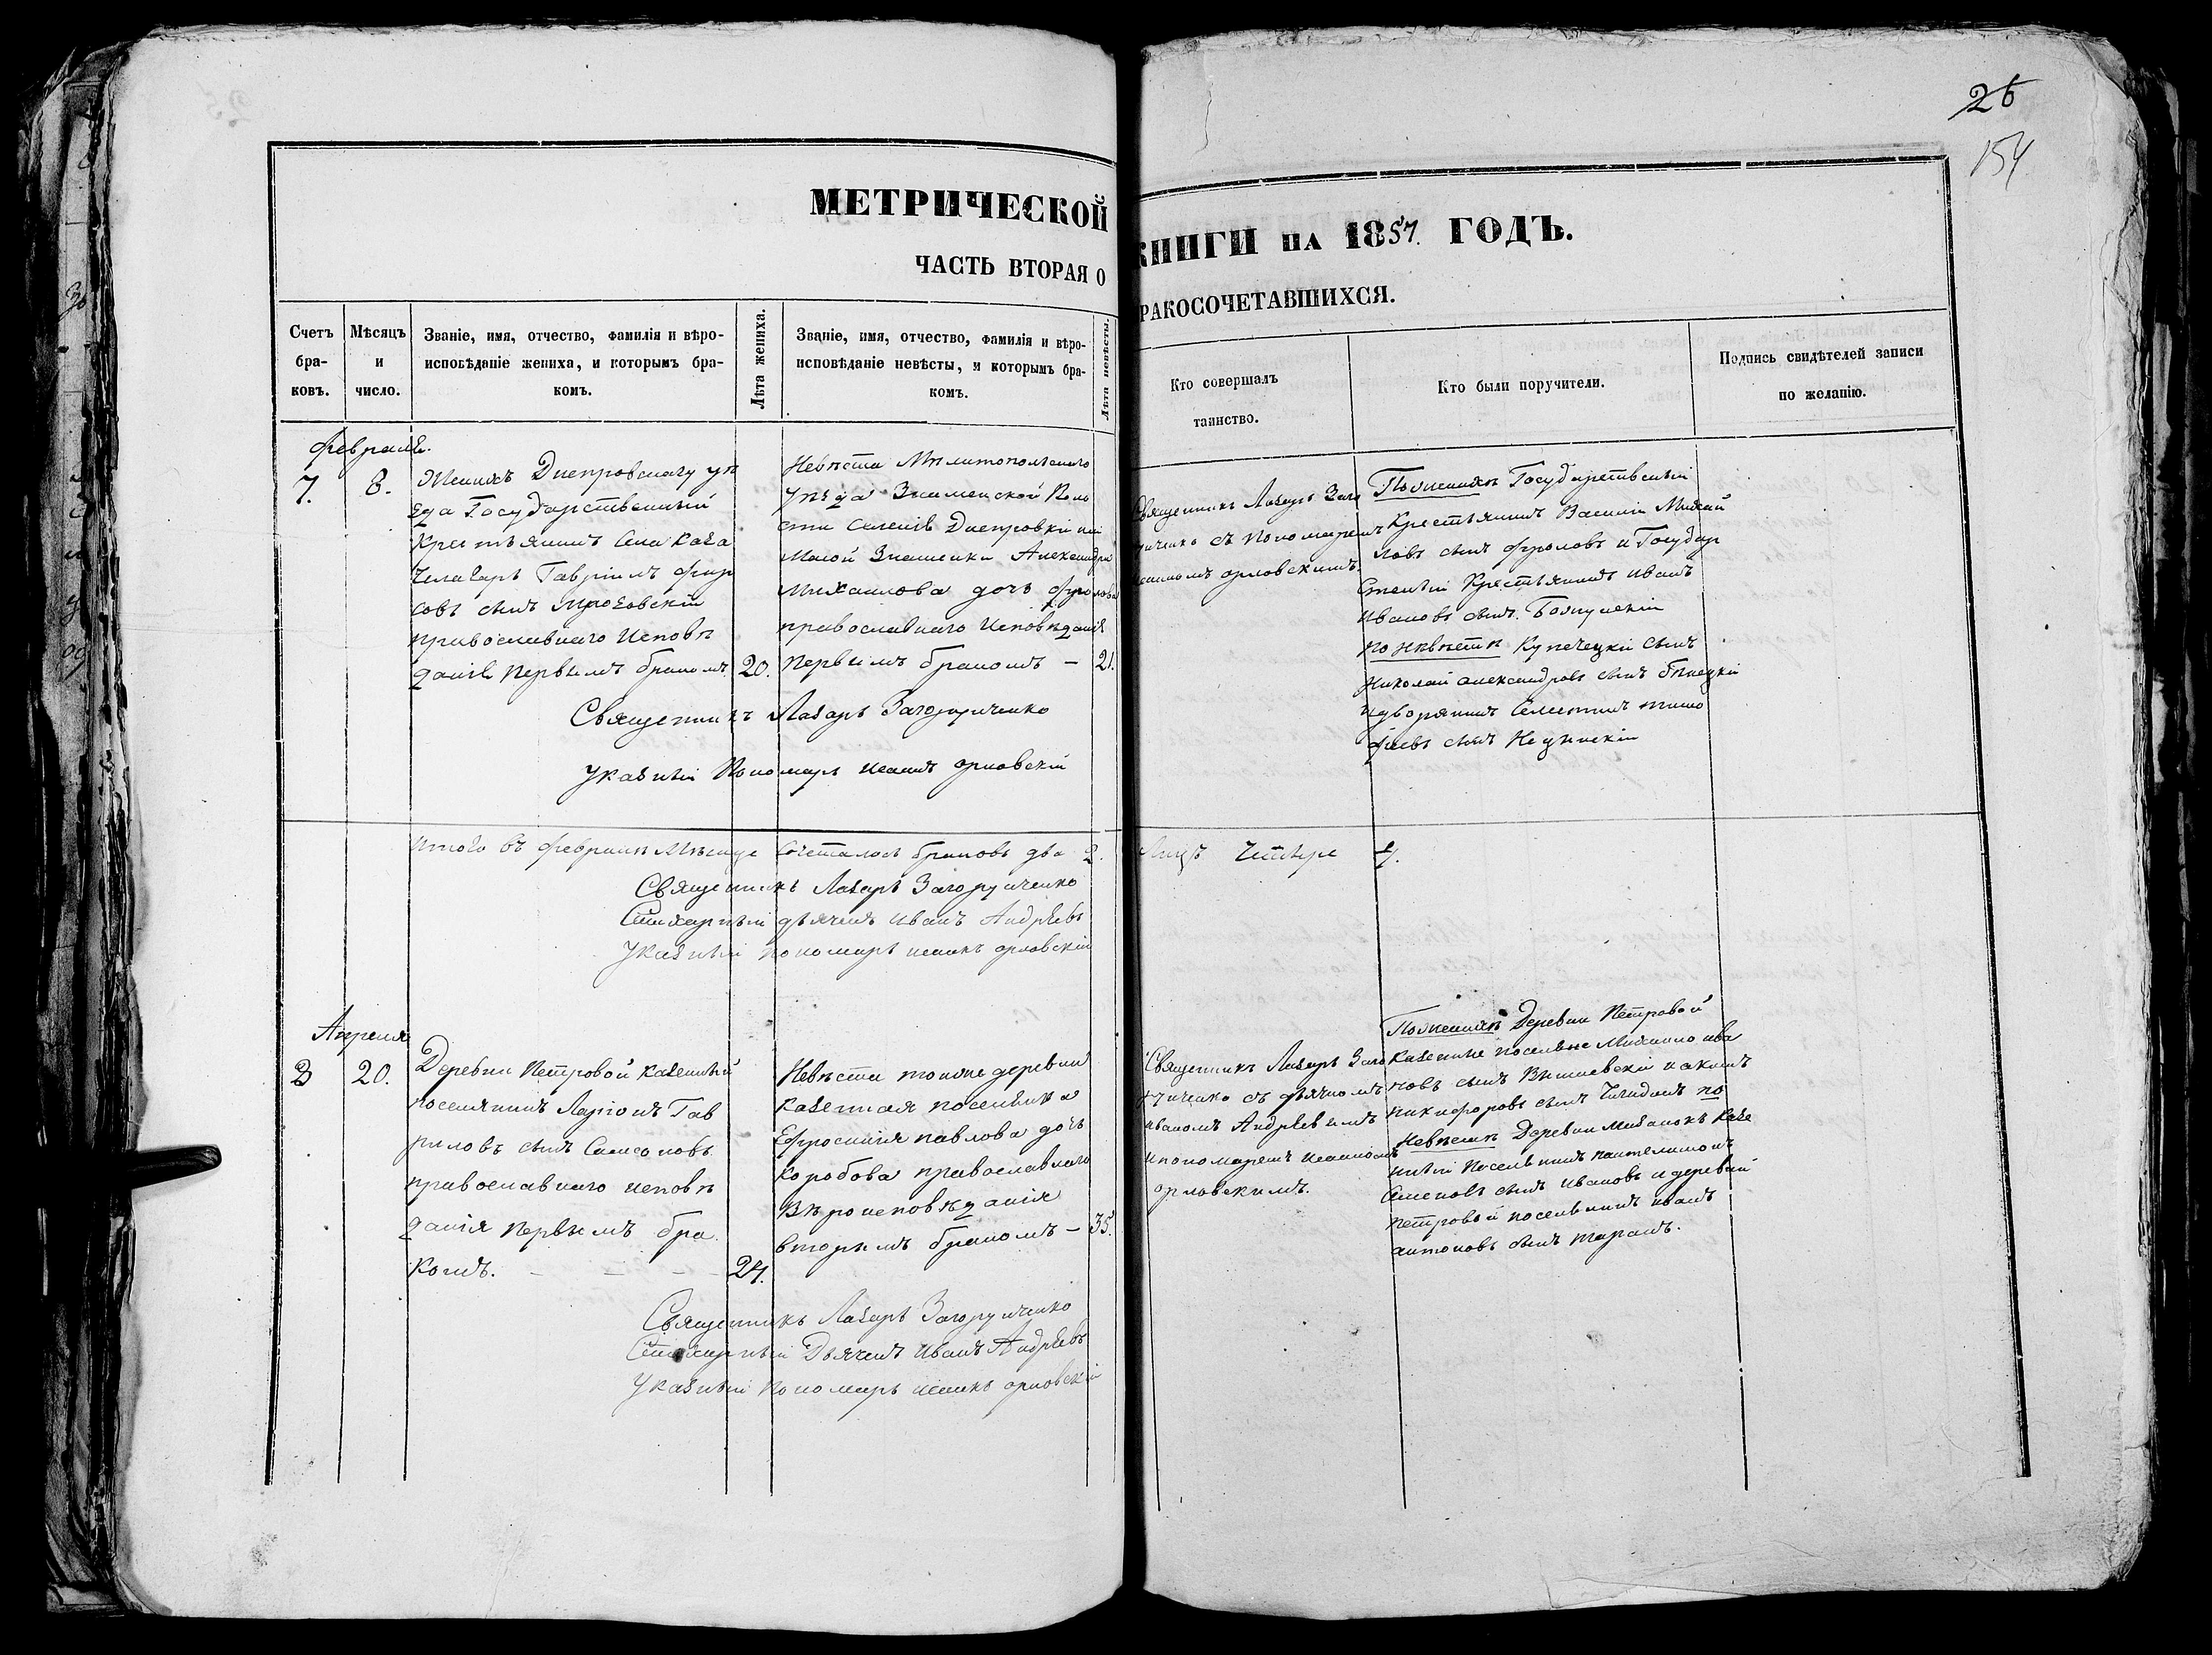 26
154
МЕТРИЧЕСКОЙ
КНИГИ НА 1857. ГОДЪ.
ЧАСТЬ ВТОРАЯ О
РАКОСОЧЕТАВШИХСЯ.
Счетъ бра- ковъ.
Мѣсяцъ и число.
Званіе, имя, отчество, фамилія и вѣро-
исповѣданіе жениха, и которымъ бра-
комъ.
Лѣта жениха.
Званіе, имя, отчество, фамилія и вѣро-
исповѣданіе невѣсты, и которымъ бра-
комъ.
Лѣта невѣсты.
Кто совершалъ
таинство.
Кто были поручители.
Подпись свидѣтелей записи
по желанію.
Февраля.
7. 8.
Женихъ Днепровскаго уѣ
зда Государственный
Крестьянинъ Села Каза
Гавріилъ Фир
совъ сынъ
православнаго Исповѣ
данія Первымъ бракомъ. 20.
Невѣста Мелитопольскаго
Уѣзда Знаменской Воло
сти Селенія Днепровки или
Малой Знаменки Александра
Михаилова дочь Фролова
православнаго Исповѣданія
Первымъ бракомъ – 21.
Священникъ Лазарь Заго
рученко съ Пономаремъ
Іоанномъ Орловскимъ.
По женихѣ Государственый
Крестьянинъ Василій Михай
ловъ сынъ Фроловъ и Государ
ственый Крестьянинъ Иванъ
Ивановъ сынъ
по невѣсти Купечецкій сынъ
Николай Александровъ сынъ
и дворянинъ тимо
феевъ сынъ
Священникъ Лазарь Загорученко
Указный Пономарь Іоаннъ Орловскій
Итого въ феврали Мѣсяце Сочеталось браковъ два 2.
Лицъ Четыре 4.
Священникъ Лазарь Загорученко
Стихарный дьячекъ Иванъ Андрѣевъ
Указный пономарь Іоаннъ Орловскій
Апреля
3 20.
Деревни Петровой казенный
поселянинъ Ларіонъ Гав
риловъ сынъ Самсоновъ
православнаго исповѣ
данія Первымъ бра
комъ. – – – 24.
Невѣста тойже деревни
казенная поселянка
Ефросинія Павлова дочь
Коробова православнаго
Вѣроисповѣданія
вторымъ бракомъ – 35.
Священникъ Лазарь Заго
рученко съ дьячкомъ
Иваномъ Андрѣевымъ
и пономаремъ Іоанномъ
Орловскимъ.
По женихѣ Деревни Петровой
казенные поселяне Михаило ива
новъ сынъ Вишневскій и акимъ
никифоровъ сынъ по
Невѣсти Деревни каза
ный Поселянинъ пантелимонъ
Семеновъ сынъ Ивановъ и деревни
Петровой поселянинъ иванъ
антоновъ сынъ таранъ.
Священникъ Лазарь Загорученко
Стихарный Дьячекъ Иванъ Андрѣевъ
Указный Пономарь Іоаннъ Орловскій